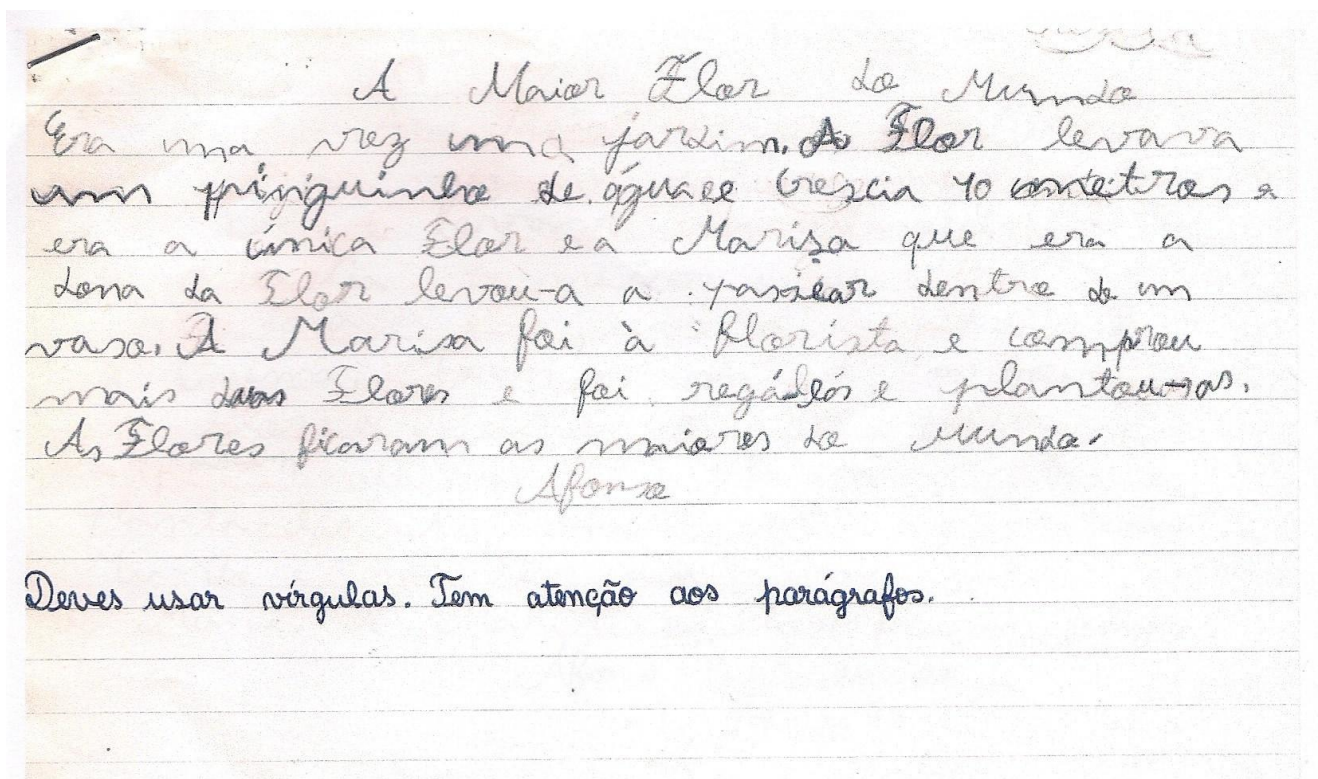 A Maior Flor do Mundo
Era uma vez uma jardim. A Flor levava
um pinguinho de água e crescia 10 metros e
era a única Flor e a Marisa que era a
dona da Flor levou-a a passear dentro de um
vaso. A Marisa foi à florista e comprou
mais duas Flores e foi regá-las e plantou-as.
As Flores ficaram as maiores do Mundo.
Afonso
Deves usar vírgulas. Tem atenção aos parágrafos.